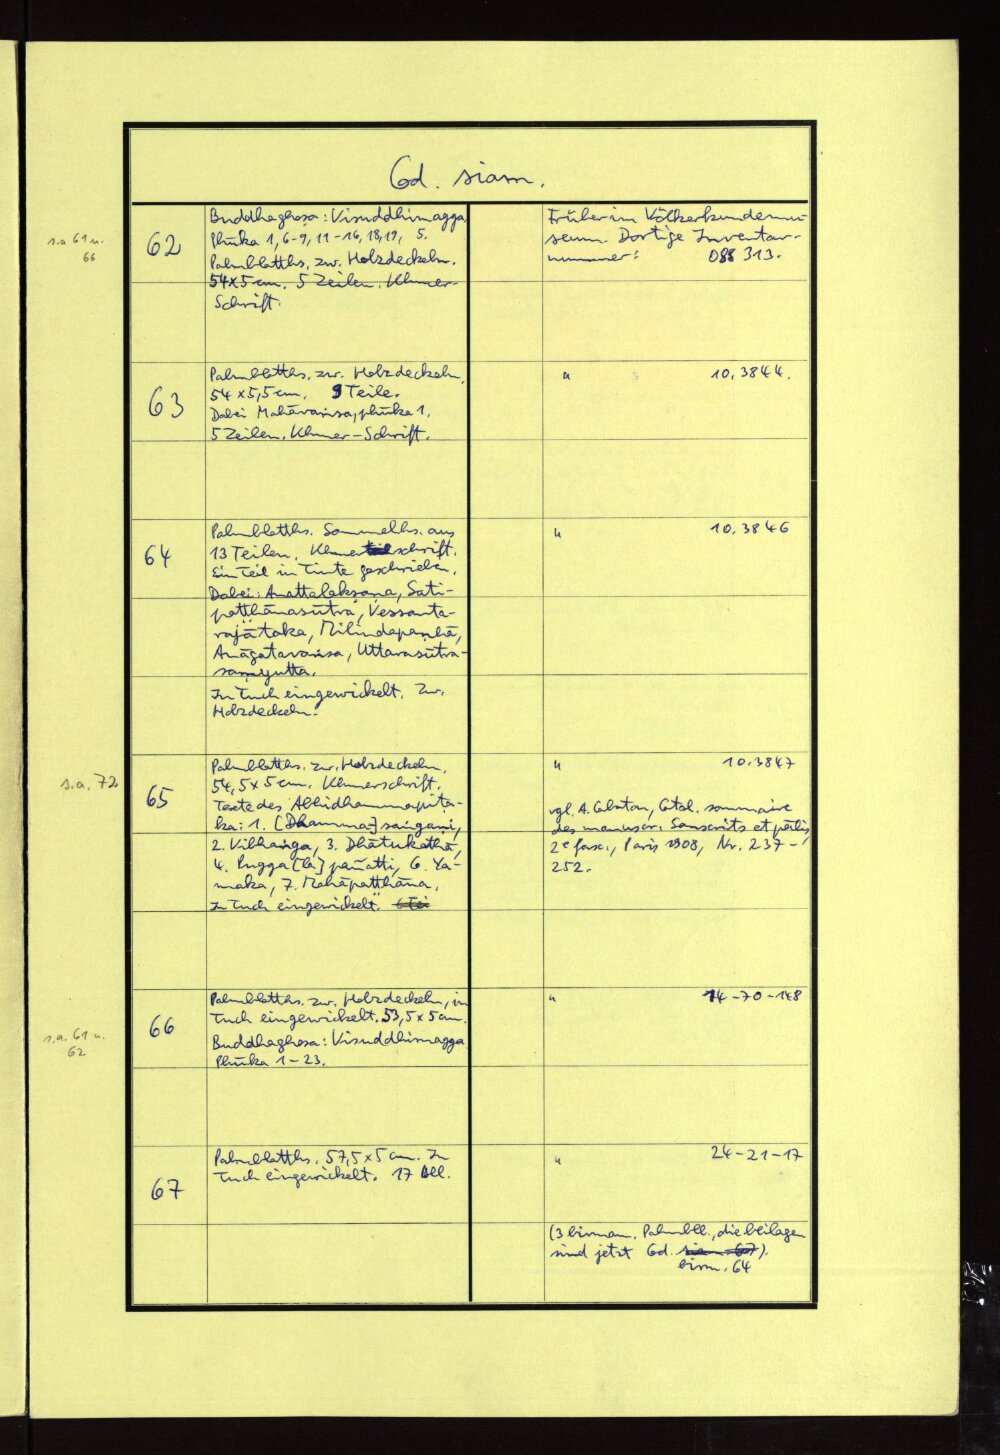 Cod. siam.
s.a. 61 u.
66
62
Buddhaghosa: Visuddhimagga,
Phūka 1, 6-9, 11-16, 18, 19, 5.
Palmblatths. zw. Holzdeckeln.
54x5 cm. 5 Zeilen. Khmer-
Schrift.
Früher im Völkerkundemu-
seum. Dortige Inventar-
nummer: 088 313.
63
Palmblatths. zw. Holzdeckeln.
54 x 5,5 cm. 9 Teile.
Dabei Mahāvaṁsa, phūka 1.
5 Zeilen. Khmer-Schrift.
" 10.3844.
64
Palmblatths. Sammelhs. aus
13 Teilen. Khmerschrift.
Ein Teil in Tinte geschrieben.
Dabei: Anattalakṣaṇa, Sati-
paṭṭhānasūtra, Vessanta-
rajātaka, Milindapañhā,
Anāgatavaṁsa, Uttarasūtra-
samyutta.
In Tuch eingewickelt. Zw.
Holzdeckeln.
" 10.3846
s.a. 72
65
Palmblatths. zw. Holzdeckeln.
54,5 x 5 cm. Khmerschrift.
Texte des Abhidhammapiṭa-
ka: 1. [Dhamma]saṅgani,
2. Vibhaṅga, 3. Dhātukathā,
4. Pugga[la]pañatti, 6. Ya-
maka, 7. Mahāpaṭṭhāna.
In Tuch eingewickelt. 6 Tei
" 10.3847
vgl. A. Cabaton, Catal. sommaire
des manuscr. Sanscrits et pālis,
2e fasc., Paris 1908, Nr. 237-
252.
s.a. 61 u.
62
66
Palmblatths. zw. Holzdeckeln, in
Tuch eingewickelt. 53,5 x 5 cm.
Buddhaghosa: Visuddhimagga
Phūka 1-23.
" 14-70-148
67
Palmblatths. 57,5 x 5 cm. In
Tuch eingewickelt. 17 Bll.
" 24-21-17
(3 birman. Palmbll., die beilagen
sind jetzt Cod. siam. 67).
birm. 64